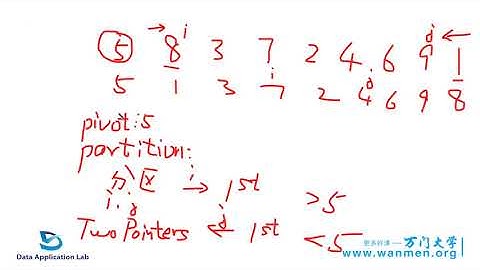 5 8 i 3 7 2 4 6 9 j 1
5 1 3 7 i 2 4 j 6 9 8
pivot:5
partition:
分区 i → 1st >5
i, j
Two Pointers j ← 1st <5
Data Application Lab
更多好课 — 万门大学
www.wanmen.org